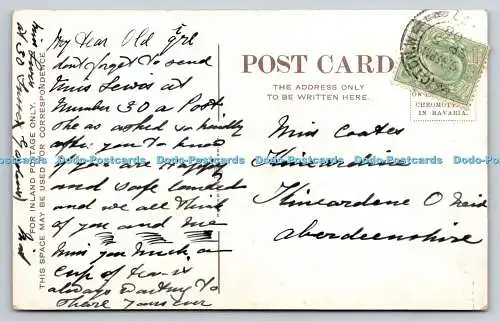 My Dear Old Grl
dont forget to send
Miss Lewis at
Number 30 a Post
She as asked so kindly
after you to know
if you are Happy
and safe landed
and we all think
of you and me
Miss you Much a
cup of tea is
always waiting to
There yours ever
Miss Lewis
at 30
POST CARD
THE ADDRESS ONLY
TO BE WRITTEN HERE.
FOR INLAND POSTAGE ONLY.
THIS SPACE MAY BE USED FOR CORRESPONDENCE
CHROMOTYP
IN BAVARIA.
Miss Coates
Kincardine
Kincardene O Neid
Aberdeenshire
Dodo-Postcards Dodo-Postcards Dodo-Postcards